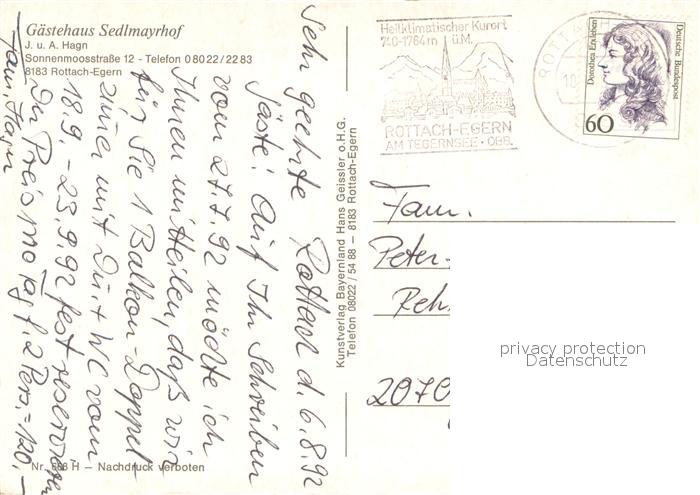 Gästehaus Sedlmayrhof
J. u. A. Hagn
Sonnenmoosstraße 12 - Telefon 0 80 22 / 22 83
8183 Rottach-Egern
Rottach d. 6.8.92
Sehr geehrte
Gäste! Auf Ihr Schreiben
vom 27.7.92 möchte ich
Ihnen mitteilen, daß wir
für Sie 1 Balkon-Doppel-
zimer mit Du. + WC vom
18.9. - 23.9.92 fest reservieren
Der Preis pro Tag f. 2 Pers. = 120.-
Fam. Hagn
Nr. 668 H – Nachdruck verboten
Kunstverlag Bayernland Hans Geissler o.H.G.
Telefon 08022 / 54 88 – 8183 Rottach-Egern
Heilklimatischer Kurort
740-1764 m ü.M.
ROTTACH-EGERN
AM TEGERNSEE · OBB.
ROTTACH
Dorothea Erxleben
Deutsche Bundespost
60
Fam.
Peter-
Reh
2070
privacy protection
Datenschutz